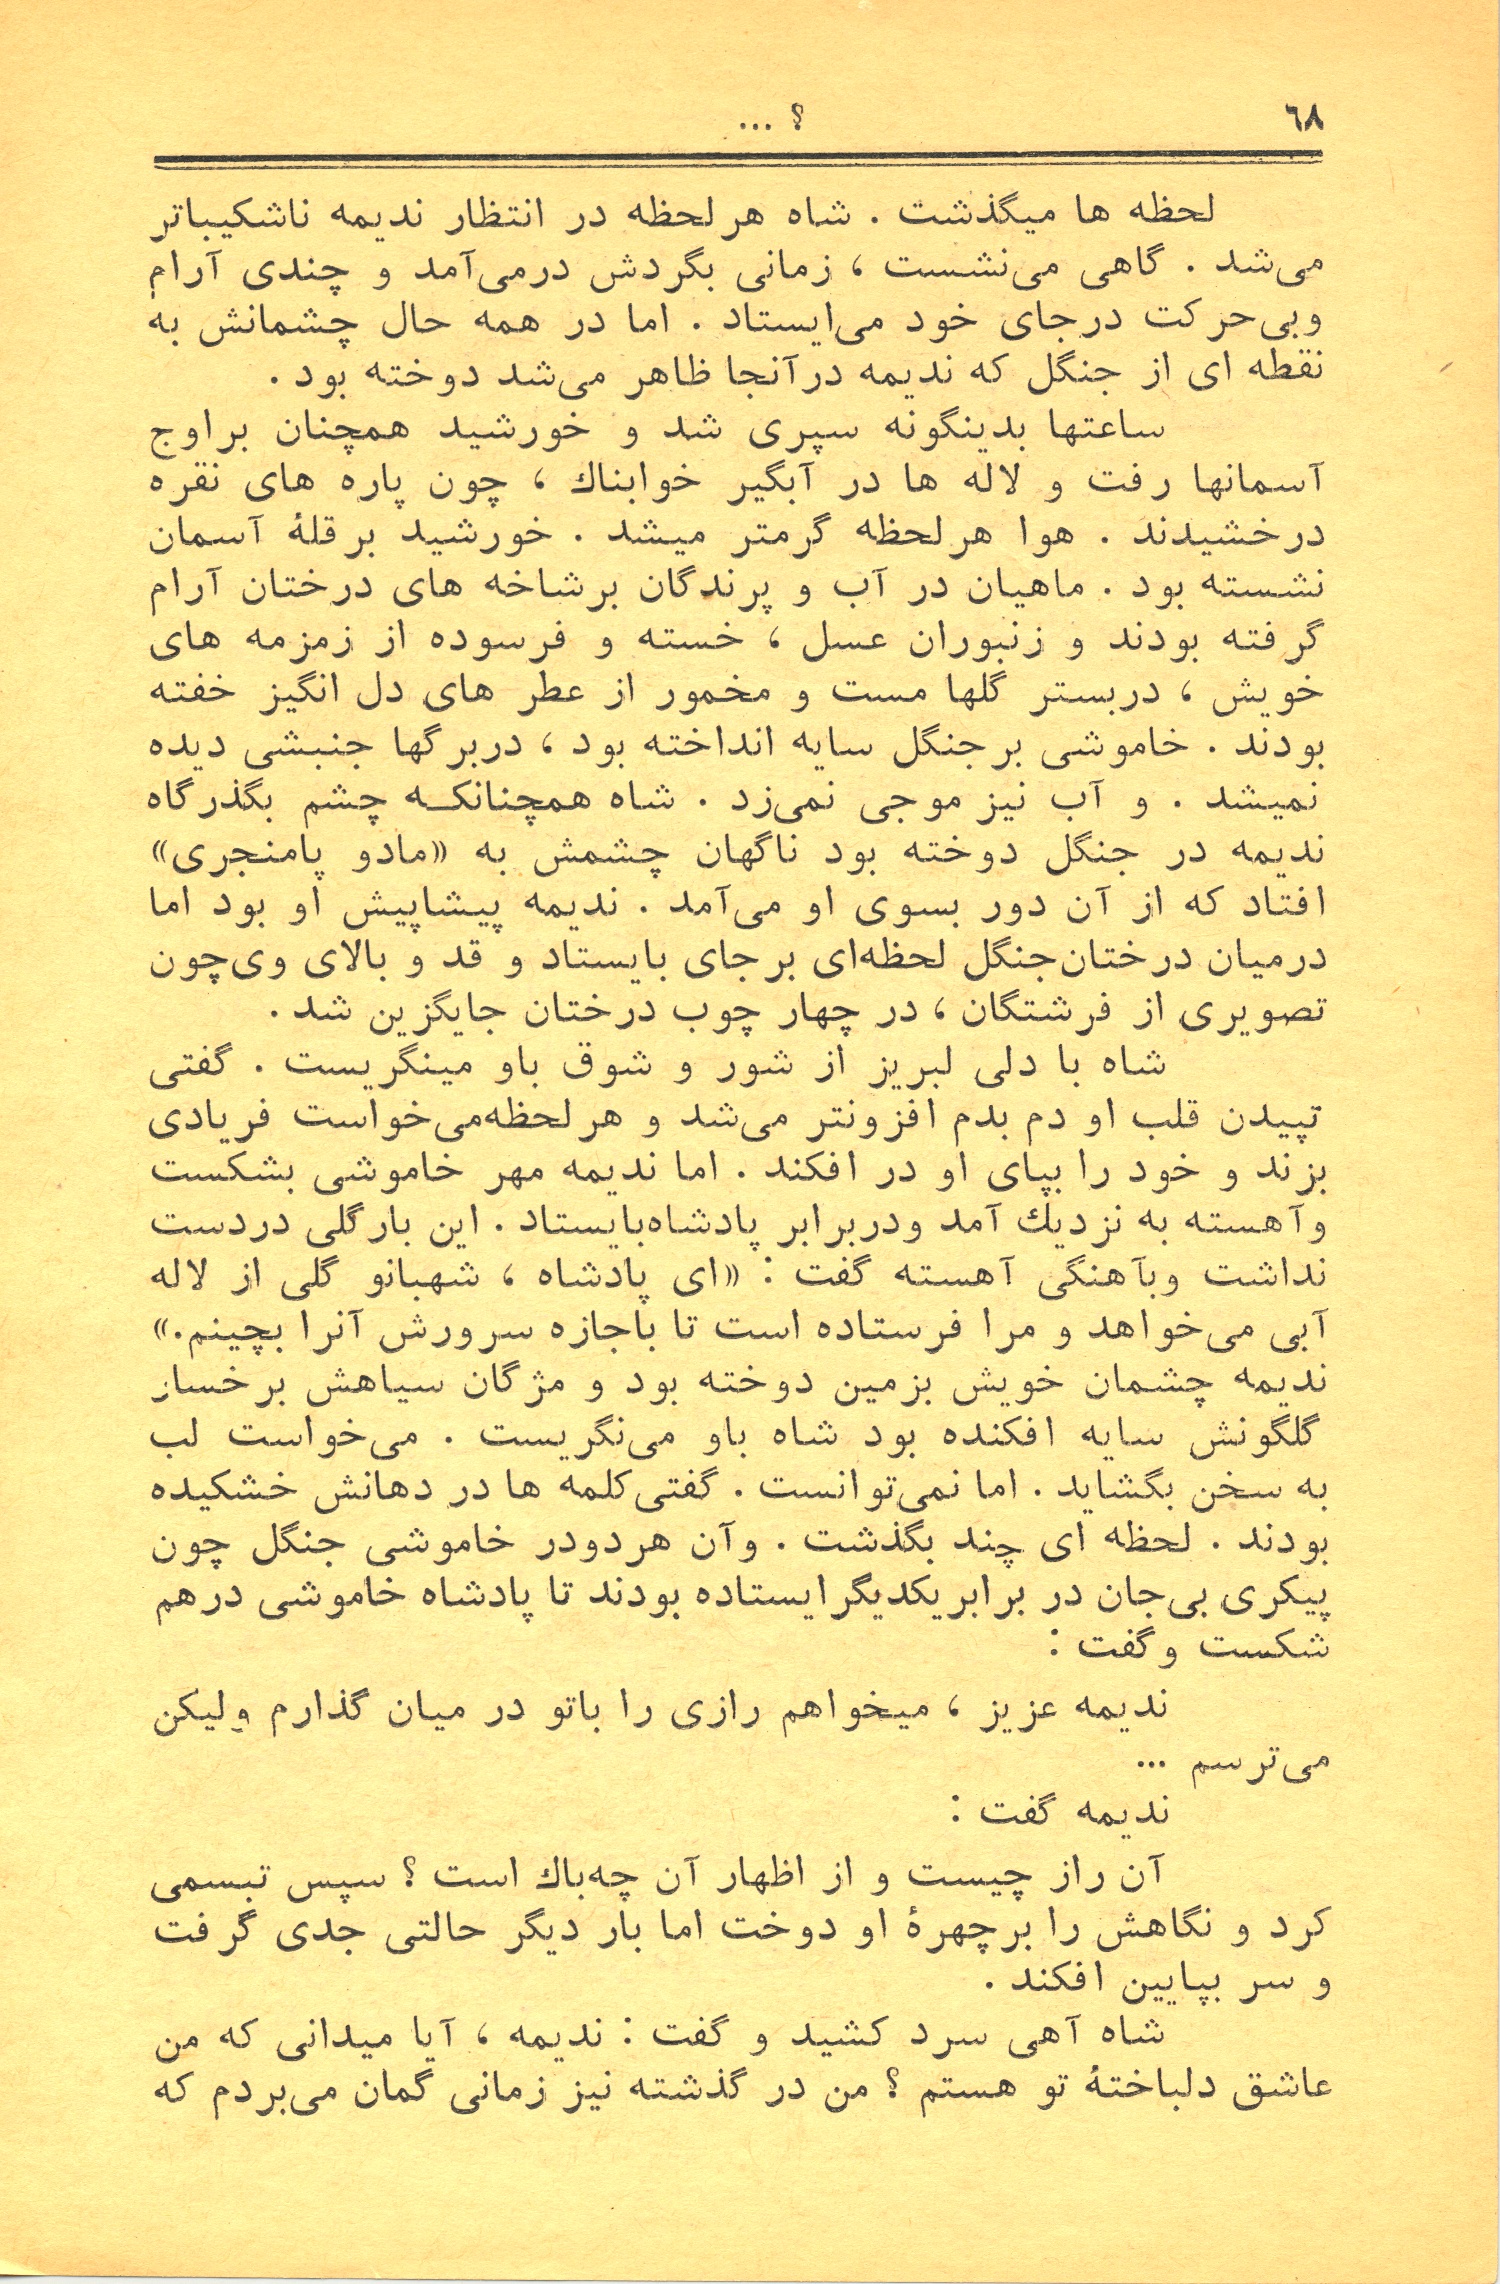 ٦٨
؟ ...
لحظه ها میگذشت . شاه هر لحظه در انتظار ندیمه ناشکیباتر
می‌شد . گاهی می‌نشست ، زمانی بگردش درمی‌آمد و چندی آرام
وبی‌حرکت درجای خود می‌ایستاد . اما در همه حال چشمانش به
نقطه ای از جنگل که ندیمه درآنجا ظاهر می‌شد دوخته بود .
ساعتها بدینگونه سپری شد و خورشید همچنان براوج
آسمانها رفت و لاله ها در آبگیر خوابناك ، چون پاره های نقره
درخشیدند . هوا هرلحظه گرمتر میشد . خورشید برقلهٔ آسمان
نشسته بود . ماهیان در آب و پرندگان برشاخه های درختان آرام
گرفته بودند و زنبوران عسل ، خسته و فرسوده از زمزمه های
خویش ، دربستر گلها مست و مخمور از عطر های دل انگیز خفته
بودند . خاموشی برجنگل سایه انداخته بود ، دربرگها جنبشی دیده
نمیشد . و آب نیز موجی نمی‌زد . شاه همچنانکه چشم بگذرگاه
ندیمه در جنگل دوخته بود ناگهان چشمش به «مادو پامنجری»
افتاد که از آن دور بسوی او می‌آمد . ندیمه پیشاپیش او بود اما
درمیان درختان‌جنگل لحظه‌ای برجای بایستاد و قد و بالای وی‌چون
تصویری از فرشتگان ، در چهار چوب درختان جایگزین شد .
شاه با دلی لبریز از شور و شوق باو مینگریست . گفتی
تپیدن قلب او دم بدم افزونتر می‌شد و هرلحظه‌می‌خواست فریادی
بزند و خود را بپای او در افکند . اما ندیمه مهر خاموشی بشکست
وآهسته به نزدیك آمد ودربرابر پادشاه‌بایستاد . این بارگلی دردست
نداشت وبآهنگی آهسته گفت : «ای پادشاه ، شهبانو گلی از لاله
آبی می‌خواهد و مرا فرستاده است تا باجازه سرورش آنرا بچینم.»
ندیمه چشمان خویش بزمین دوخته بود و مژگان سیاهش برخسار
گلگونش سایه افکنده بود شاه باو می‌نگریست . می‌خواست لب
به سخن بگشاید . اما نمی‌توانست . گفتی‌کلمه ها در دهانش خشکیده
بودند . لحظه ای چند بگذشت . وآن هردودر خاموشی جنگل چون
پیکری بی‌جان در برابریکدیگرایستاده بودند تا پادشاه خاموشی درهم
شکست وگفت :
ندیمه عزیز ، میخواهم رازی را باتو در میان گذارم ولیکن
می‌ترسم ...
ندیمه گفت :
آن راز چیست و از اظهار آن چه‌باك است ؟ سپس تبسمی
کرد و نگاهش را برچهرهٔ او دوخت اما بار دیگر حالتی جدی گرفت
و سر بپایین افکند .
شاه آهی سرد کشید و گفت : ندیمه ، آیا میدانی که من
عاشق دلباختهٔ تو هستم ؟ من در گذشته نیز زمانی گمان می‌بردم که